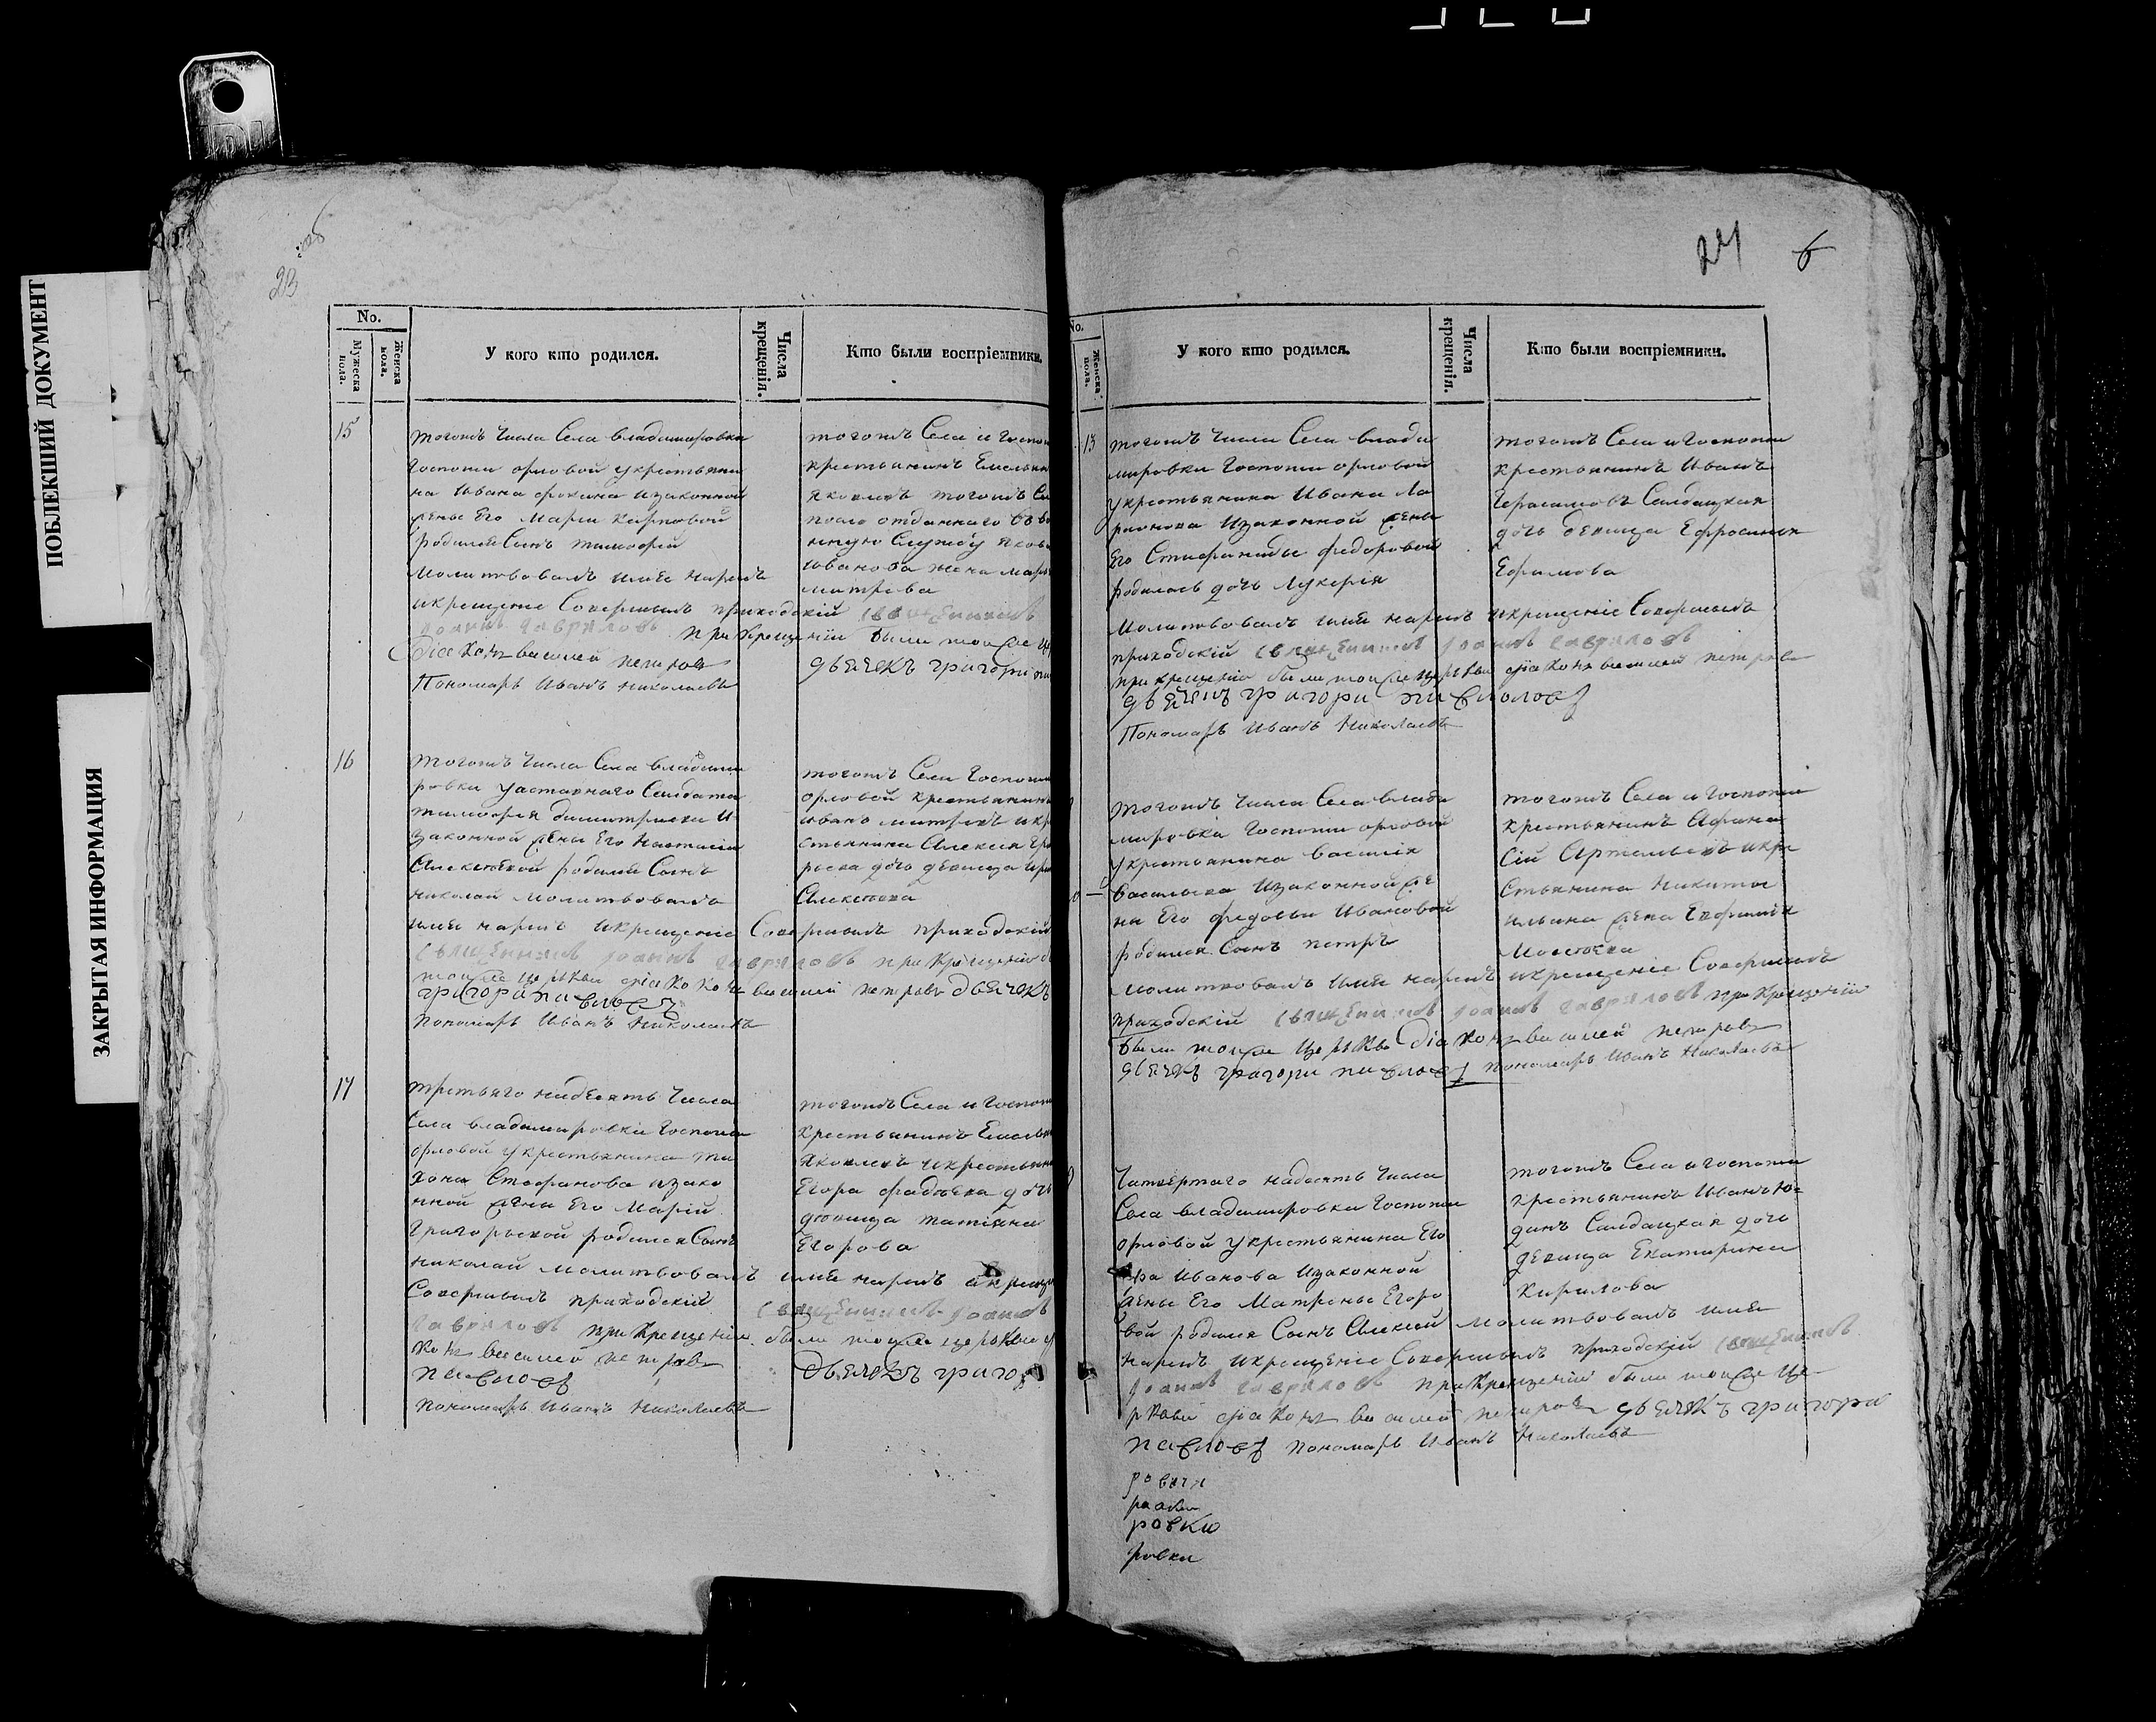 ПОБЛЕКШИЙ ДОКУМЕНТ
ЗАКРЫТАЯ ИНФОРМАЦИЯ
23
No.
Мужеска пола.
Женска пола.
У кого кто родился.
Числа крещенія.
Кто были воспріемники.
15
тогожъ Числа Села владимировки
Госпожи орловой укрестьяни
на Ивана фокина изаконной
жены Его Марьи Карповой
родился Сынъ тимофей
Молитвовалъ имя нарекъ
икрещеніе Совершилъ приходскій священникъ
іоаннъ гавриловъ при крещеніи были тоя же
діаконъ василей петровъ
Пономарь Иванъ Николаевъ
тогожъ Села и Госпожи
крестьянинъ Емельянъ
яковлевъ тогожъ
послѣ отданнаго въ
нную Службу
иванова жена
митрева
дьячекъ григори
16
тогожъ Числа Села владими
ровки Солдата
тимофея димитриева и
законной жены Его Настасіи
Алексѣевой родился Сынъ
николай молитвовалъ
имя нарекъ икрещеніе Совершилъ приходскій
священникъ іоаннъ гавриловъ при крещеніи
тоя же церкви діаконъ василей петровъ дьячекъ
григори павловъ
пономарь Иванъ Николаевъ
тогожъ Села Госпожи
орловой крестьянинъ
иванъ митревъ икре
стьянина Алексея
дочь девица
Алексѣева
17
третьяго надесять Числа
Села владимировки Госпожи
орловой укрестьянина ти
хона Стефанова изако
нной жены Его Маріи
Григорьевой родился Сынъ
николай молитвовалъ имя нарекъ и креще
Совершилъ приходскій священникъ іоаннъ
гавриловъ при крещеніи были тоя же церкви
конъ василей петровъ дьячекъ григо
павловъ
пономарь Иванъ Николаевъ
тогожъ Села и Госпожи
крестьянинъ Емельянъ
яковлевъ икрестьянина
Егора фадѣева дочь
дѣвица татіяна
Егорова
24 6
No.
Женска пола.
У кого кто родился.
Числа крещенія.
Кто были воспріемники.
13
тогожъ Числа Села влади
мировки Госпожи орловой
укрестьянина Ивана Ла
рионова Изаконной жены
Его Стефаниды федоровой
родилась дочь Лукерія
Молитвовалъ имя нарекъ икрещеніе Совершилъ
приходскій священникъ іоаннъ гавриловъ
прикрещеніи были тоя же церкви діаконъ василей петровъ
дьячекъ григори павловъ
Пономарь Иванъ Николаевъ
тогожъ Села и Госпожи
крестьянинъ Иванъ
Герасимовъ Салдацкая
дочь девица Ефросинья
Ефимова
тогожъ Числа Села влади
мировки Госпожи орловой
укрестьянина василія
васильева Изаконной же
ны Его федосьи Ивановой
родился Сынъ петръ
Молитвовалъ имя нарекъ икрещеніе Совершилъ
приходскій священникъ іоаннъ гавриловъ при крещеніи
были тоя же церкви діаконъ василей петровъ
дьячекъ григори павловъ пономарь Иванъ Николаевъ
тогожъ Села и Госпожи
крестьянинъ Афана
сій Артемьевъ икре
стьянина Никиты
ильина жена Евфимія
Моисѣева
Четвертаго надесять Числа
Села владимировки Госпожи
орловой укрестьянина Его
ра Иванова Изаконной
жены Его Матрены Егоро
вой родился Сынъ Алексей молитвовалъ имя
нарекъ икрещеніе Совершилъ приходскій священникъ
іоаннъ гавриловъ прикрещеніи были тоя же це
ркви діаконъ василей петровъ дьячекъ григори
павловъ пономарь Иванъ Николаевъ
тогожъ Села и Госпожи
крестьянинъ Иванъ Ю
динъ Салдацкая дочь
девица Екатерина
Кирилова
ровки
ровкю
ровки